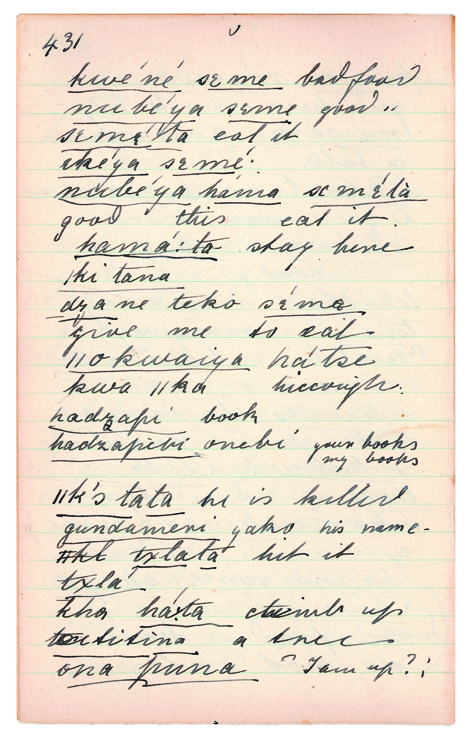 431
kwé'né seme bad food
nubé'ya seme good "
semé'ta eat it
eké'ya semé:
nubé'ya háma semétà
good this eat it.
kamá:ta stay here
|ki tana
dzane teko séme
give me to eat
||okwaiya hátse
kwa ||ka hiccough.
hadzapi book
hadzapibi onebi your books
my books
||k's tata he is killed
gundameni yako his name-
txlata hit it
txla
kha há:ta climb up
tsitina a tree
ona puna "I am up?;